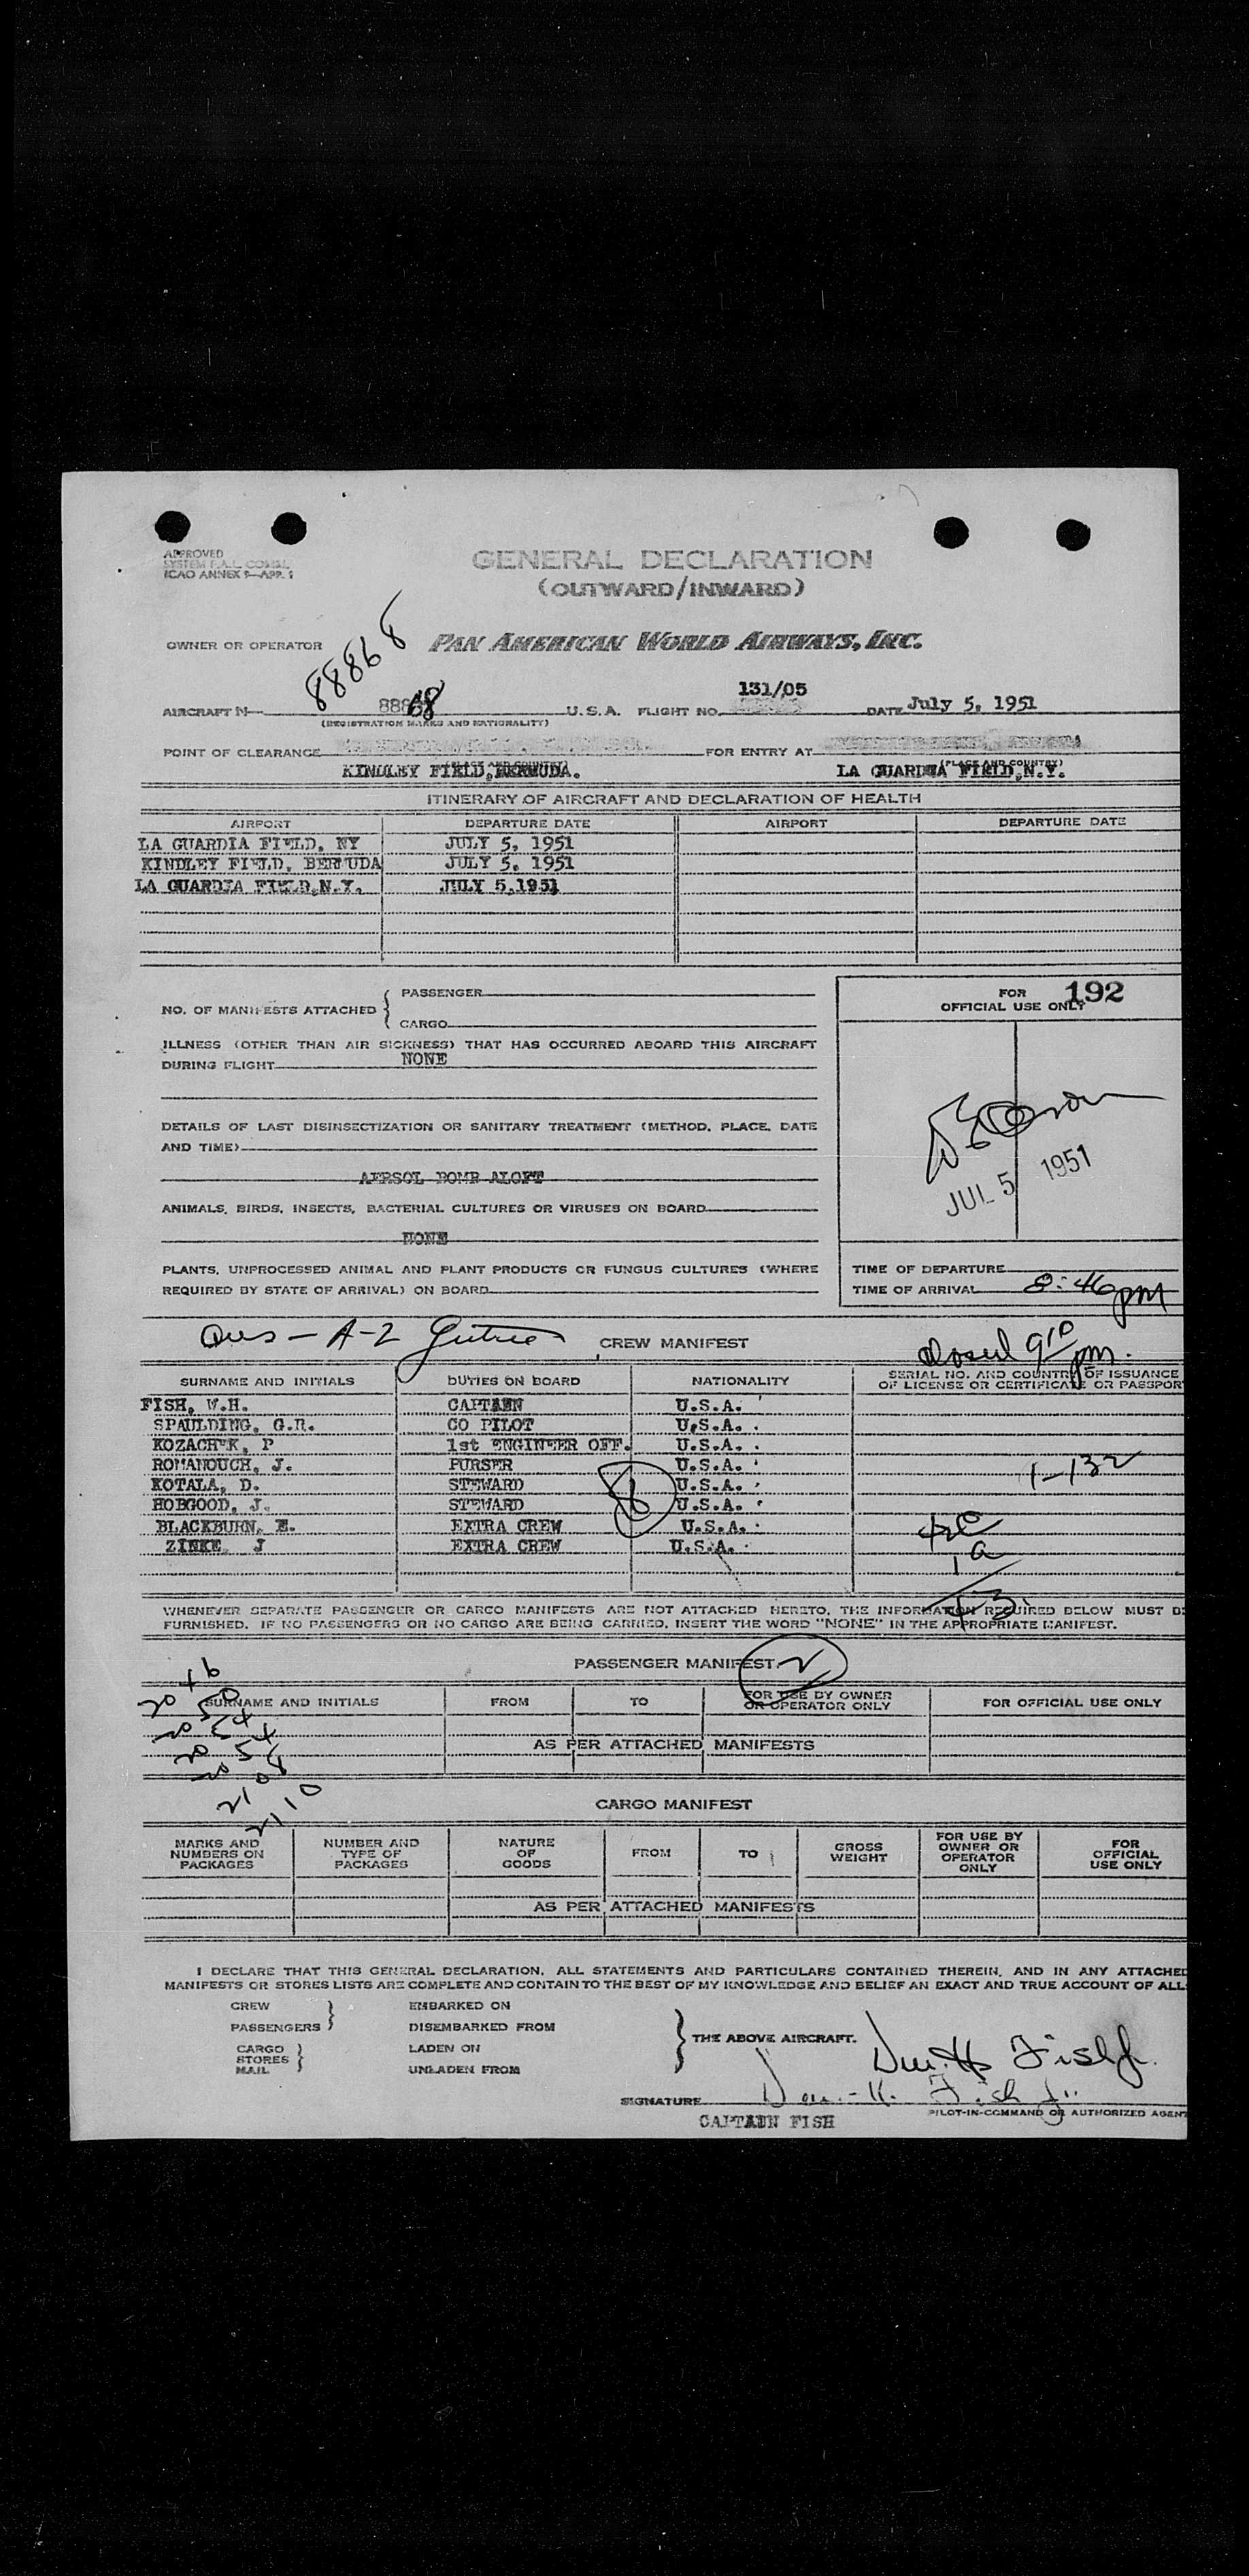 APPROVED
SYSTEM F.A.L. COM&L
ICAO ANNEX 9—APP. 1
GENERAL DECLARATION
(OUTWARD/INWARD)
OWNER OR OPERATOR PAN AMERICAN WORLD AIRWAYS, INC.
88868
131/05
AIRCRAFT N— 88868 U.S.A. FLIGHT NO. DATE July 5, 1951
(REGISTRATION MARKS AND NATIONALITY)
POINT OF CLEARANCE FOR ENTRY AT
KINDLEY FIELD, BERMUDA. LA GUARDIA FIELD, N.Y.
(PLACE AND COUNTRY)
ITINERARY OF AIRCRAFT AND DECLARATION OF HEALTH
AIRPORT DEPARTURE DATE AIRPORT DEPARTURE DATE
LA GUARDIA FIELD, NY JULY 5, 1951
KINDLEY FIELD, BERMUDA JULY 5, 1951
LA GUARDIA FIELD,N.Y. JULY 5,1951
NO. OF MANIFESTS ATTACHED { PASSENGER
CARGO
FOR
OFFICIAL USE ONLY 192
ILLNESS (OTHER THAN AIR SICKNESS) THAT HAS OCCURRED ABOARD THIS AIRCRAFT
DURING FLIGHT NONE
DETAILS OF LAST DISINSECTIZATION OR SANITARY TREATMENT (METHOD, PLACE, DATE
AND TIME)
AERSOL BOMB ALOFT
JUL 5 1951
ANIMALS, BIRDS, INSECTS, BACTERIAL CULTURES OR VIRUSES ON BOARD
NONE
PLANTS, UNPROCESSED ANIMAL AND PLANT PRODUCTS OR FUNGUS CULTURES (WHERE
REQUIRED BY STATE OF ARRIVAL) ON BOARD
TIME OF DEPARTURE
TIME OF ARRIVAL 8:46 pm
A-2 CREW MANIFEST closed 9 10 pm.
SURNAME AND INITIALS DUTIES ON BOARD NATIONALITY SERIAL NO. AND COUNTRY OF ISSUANCE
OF LICENSE OR CERTIFICATE OR PASSPOR
FISH, W.H. CAPTAIN U.S.A.
SPAULDING, G.R. CO PILOT U.S.A.
KOZACHEK, P 1st ENGINEER OFF. U.S.A.
ROMANOUCH, J. PURSER U.S.A. 1-132
KOTALA, D. STEWARD U.S.A.
HOBGOOD, J. STEWARD 8 U.S.A.
BLACKBURN, E. EXTRA CREW U.S.A.
ZINKE J EXTRA CREW U.S.A.
WHENEVER SEPARATE PASSENGER OR CARGO MANIFESTS ARE NOT ATTACHED HERETO, THE INFORMATION REQUIRED BELOW MUST B
FURNISHED. IF NO PASSENGERS OR NO CARGO ARE BEING CARRIED, INSERT THE WORD "NONE" IN THE APPROPRIATE MANIFEST.
PASSENGER MANIFEST 2
SURNAME AND INITIALS FROM TO FOR USE BY OWNER
OR OPERATOR ONLY FOR OFFICIAL USE ONLY
AS PER ATTACHED MANIFESTS
2046
2050
2054
2054
2108
2110
CARGO MANIFEST
MARKS AND
NUMBERS ON
PACKAGES
NUMBER AND
TYPE OF
PACKAGES
NATURE
OF
GOODS
FROM TO
GROSS
WEIGHT
FOR USE BY
OWNER OR
OPERATOR
ONLY
FOR
OFFICIAL
USE ONLY
AS PER ATTACHED MANIFESTS
I DECLARE THAT THIS GENERAL DECLARATION, ALL STATEMENTS AND PARTICULARS CONTAINED THEREIN, AND IN ANY ATTACHED
MANIFESTS OR STORES LISTS ARE COMPLETE AND CONTAIN TO THE BEST OF MY KNOWLEDGE AND BELIEF AN EXACT AND TRUE ACCOUNT OF ALL
CREW EMBARKED ON
PASSENGERS } DISEMBARKED FROM
CARGO LADEN ON } THE ABOVE AIRCRAFT.
STORES
MAIL UNLADEN FROM
Fish Jr.
SIGNATURE Fish Jr.
CAPTAIN FISH PILOT-IN-COMMAND OR AUTHORIZED AGENT